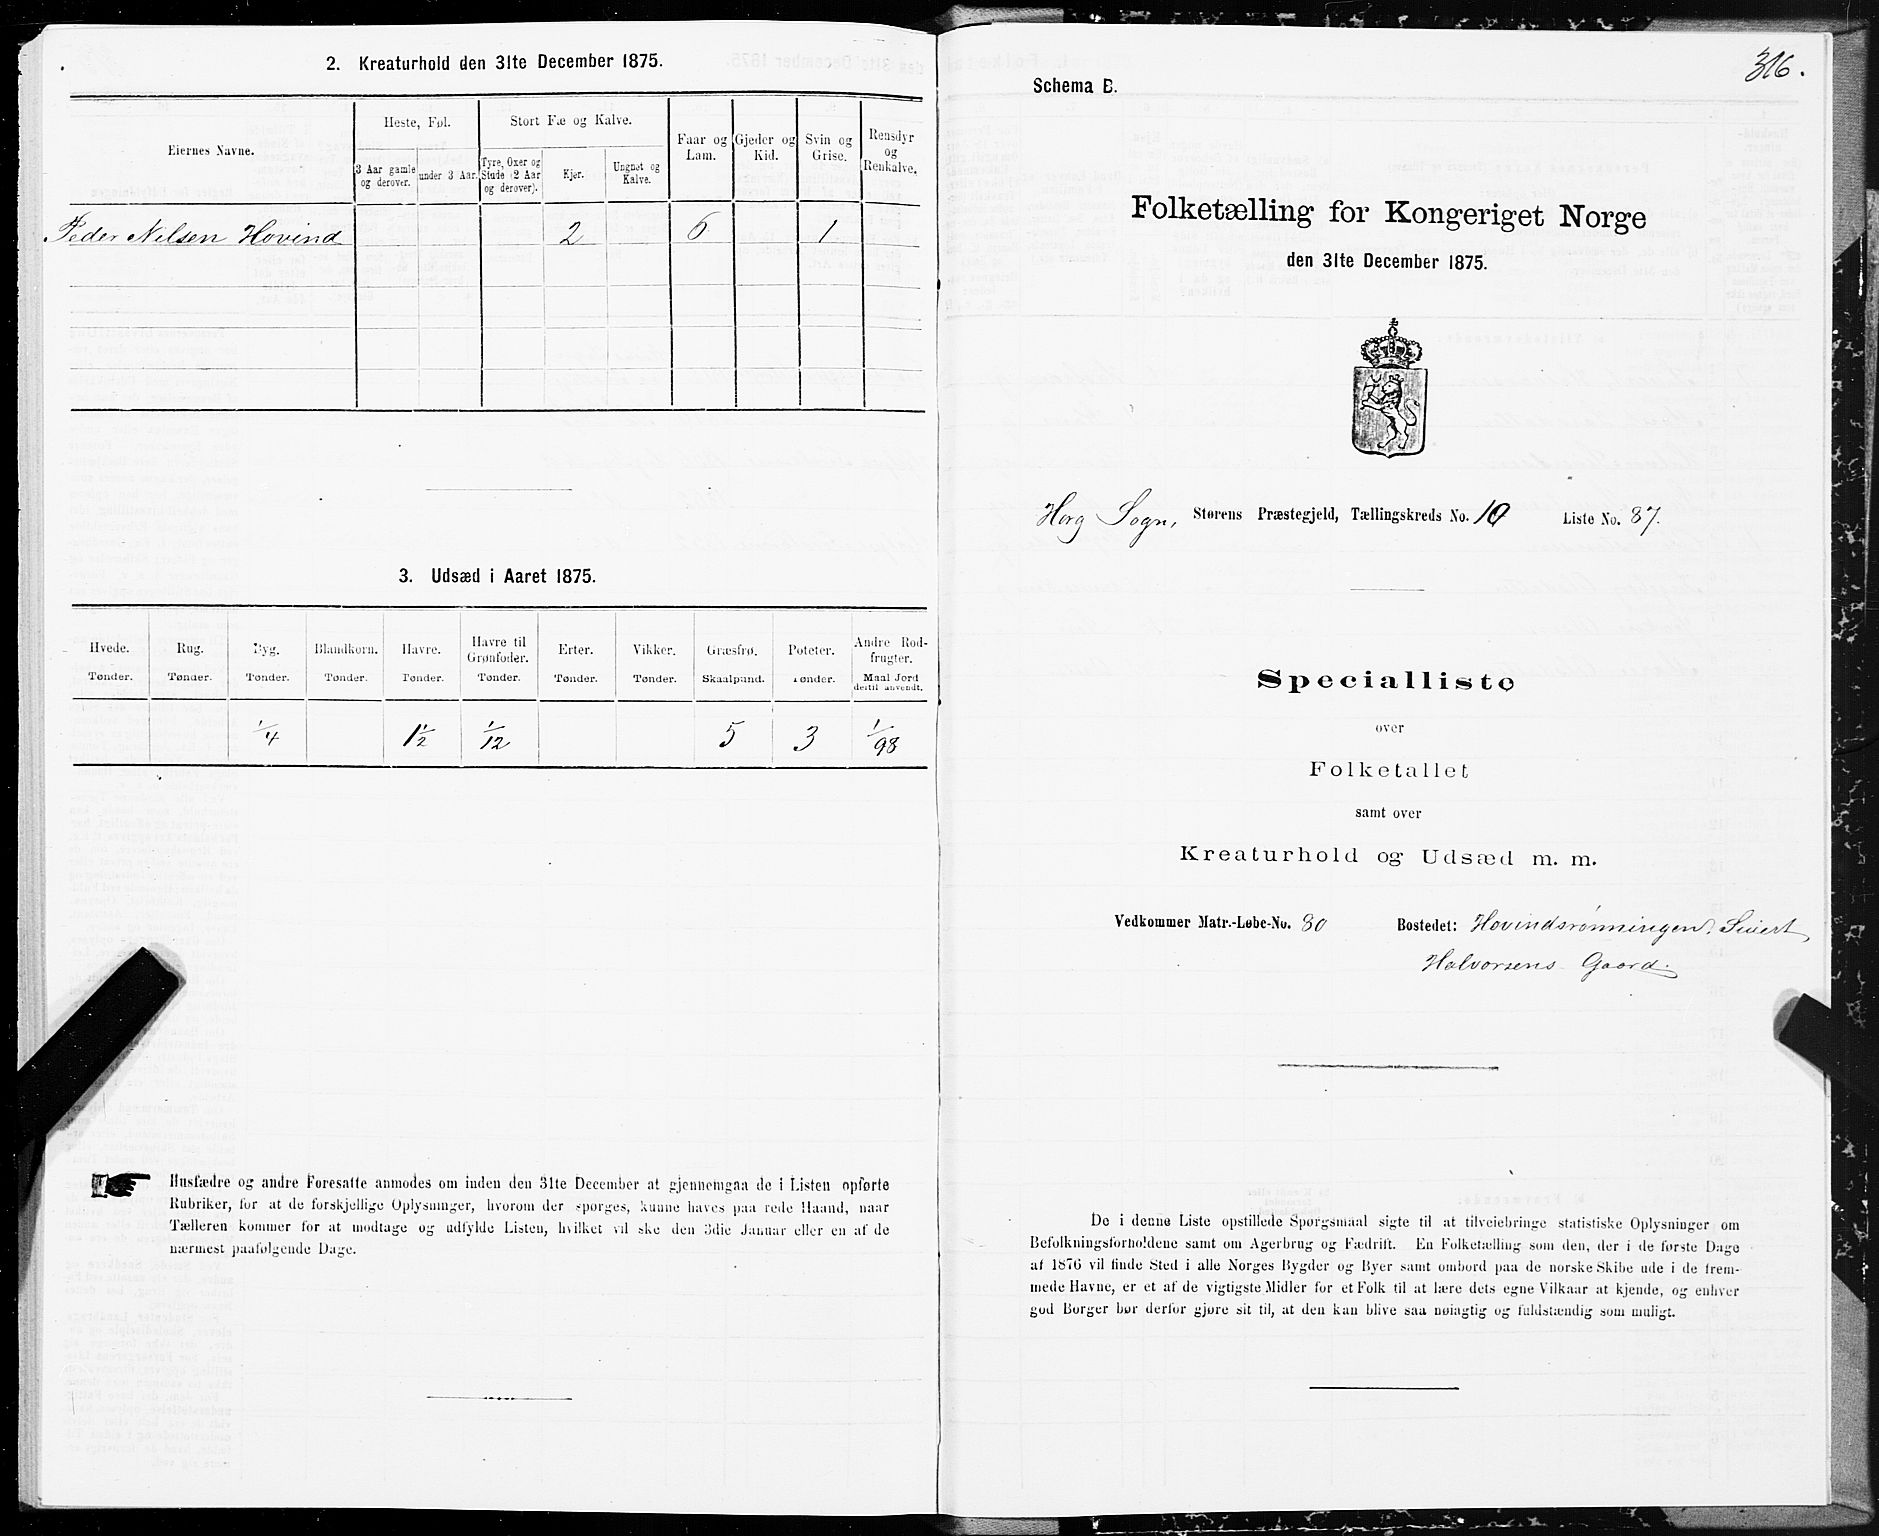 2. Kreaturhold den 31te December 1875.
Eiernes Navne.
Heste, Føl.
Stort Fæ og Kalve.
Faar og Lam.
Gjeder og Kid.
Svin og Grise.
Rensdyr og Renkalve.
3 Aar gamle og derover.
under 3 Aar.
Tyre, Oxer og Stude (2 Aar og derover).
Kjør.
Ungnøt og Kalve.
Peder Nilsen Hovind 2 6 1
3. Udsæd i Aaret 1875.
Hvede. Rug. Byg. Blandkorn. Havre. Havre til Grønfoder. Erter. Vikker. Græsfrø. Poteter. Andre Rodfrugter.
Tønder. Tønder. Tønder. Tønder. Tønder. Tønder. Tønder. Tønder. Skaalpund. Tønder. Maal Jord dertil anvendt.
1/4 1 1/2 1/12 5 3 1/98
Husfædre og andre Foresatte anmodes om inden den 31te December at gjennemgaa de i Listen opførte
Rubriker, for at de forskjellige Oplysninger, hvorom der spørges, kunne haves paa rede Haand, naar
Tælleren kommer for at modtage og udfylde Listen, hvilket vil ske den 3die Januar eller en af de
nærmest paafølgende Dage.
316.
Schema B.
Folketælling for Kongeriget Norge
den 31te December 1875.
Horg Sogn, Størens Præstegjeld, Tællingskreds No. 10 Liste No. 87.
Specialliste
over
Folketallet
samt over
Kreaturhold og Udsæd m. m.
Vedkommer Matr.-Løbe-No. 80 Bostedet: Hovindsrønningen, Sivert
Halvorsens Gaard.
De i denne Liste opstillede Spørgsmaal sigte til at tilveiebringe statistiske Oplysninger om
Befolkningsforholdene samt om Agerbrug og Fædrift. En Folketælling som den, der i de første Dage
af 1876 vil finde Sted i alle Norges Bygder og Byer samt ombord paa de norske Skibe ude i de frem-
mede Havne, er et af de vigtigste Midler for et Folk til at lære dets egne Vilkaar at kjende, og enhver
god Borger bør derfor gjøre sit til, at den kan blive saa nøiagtig og fuldstændig som muligt.